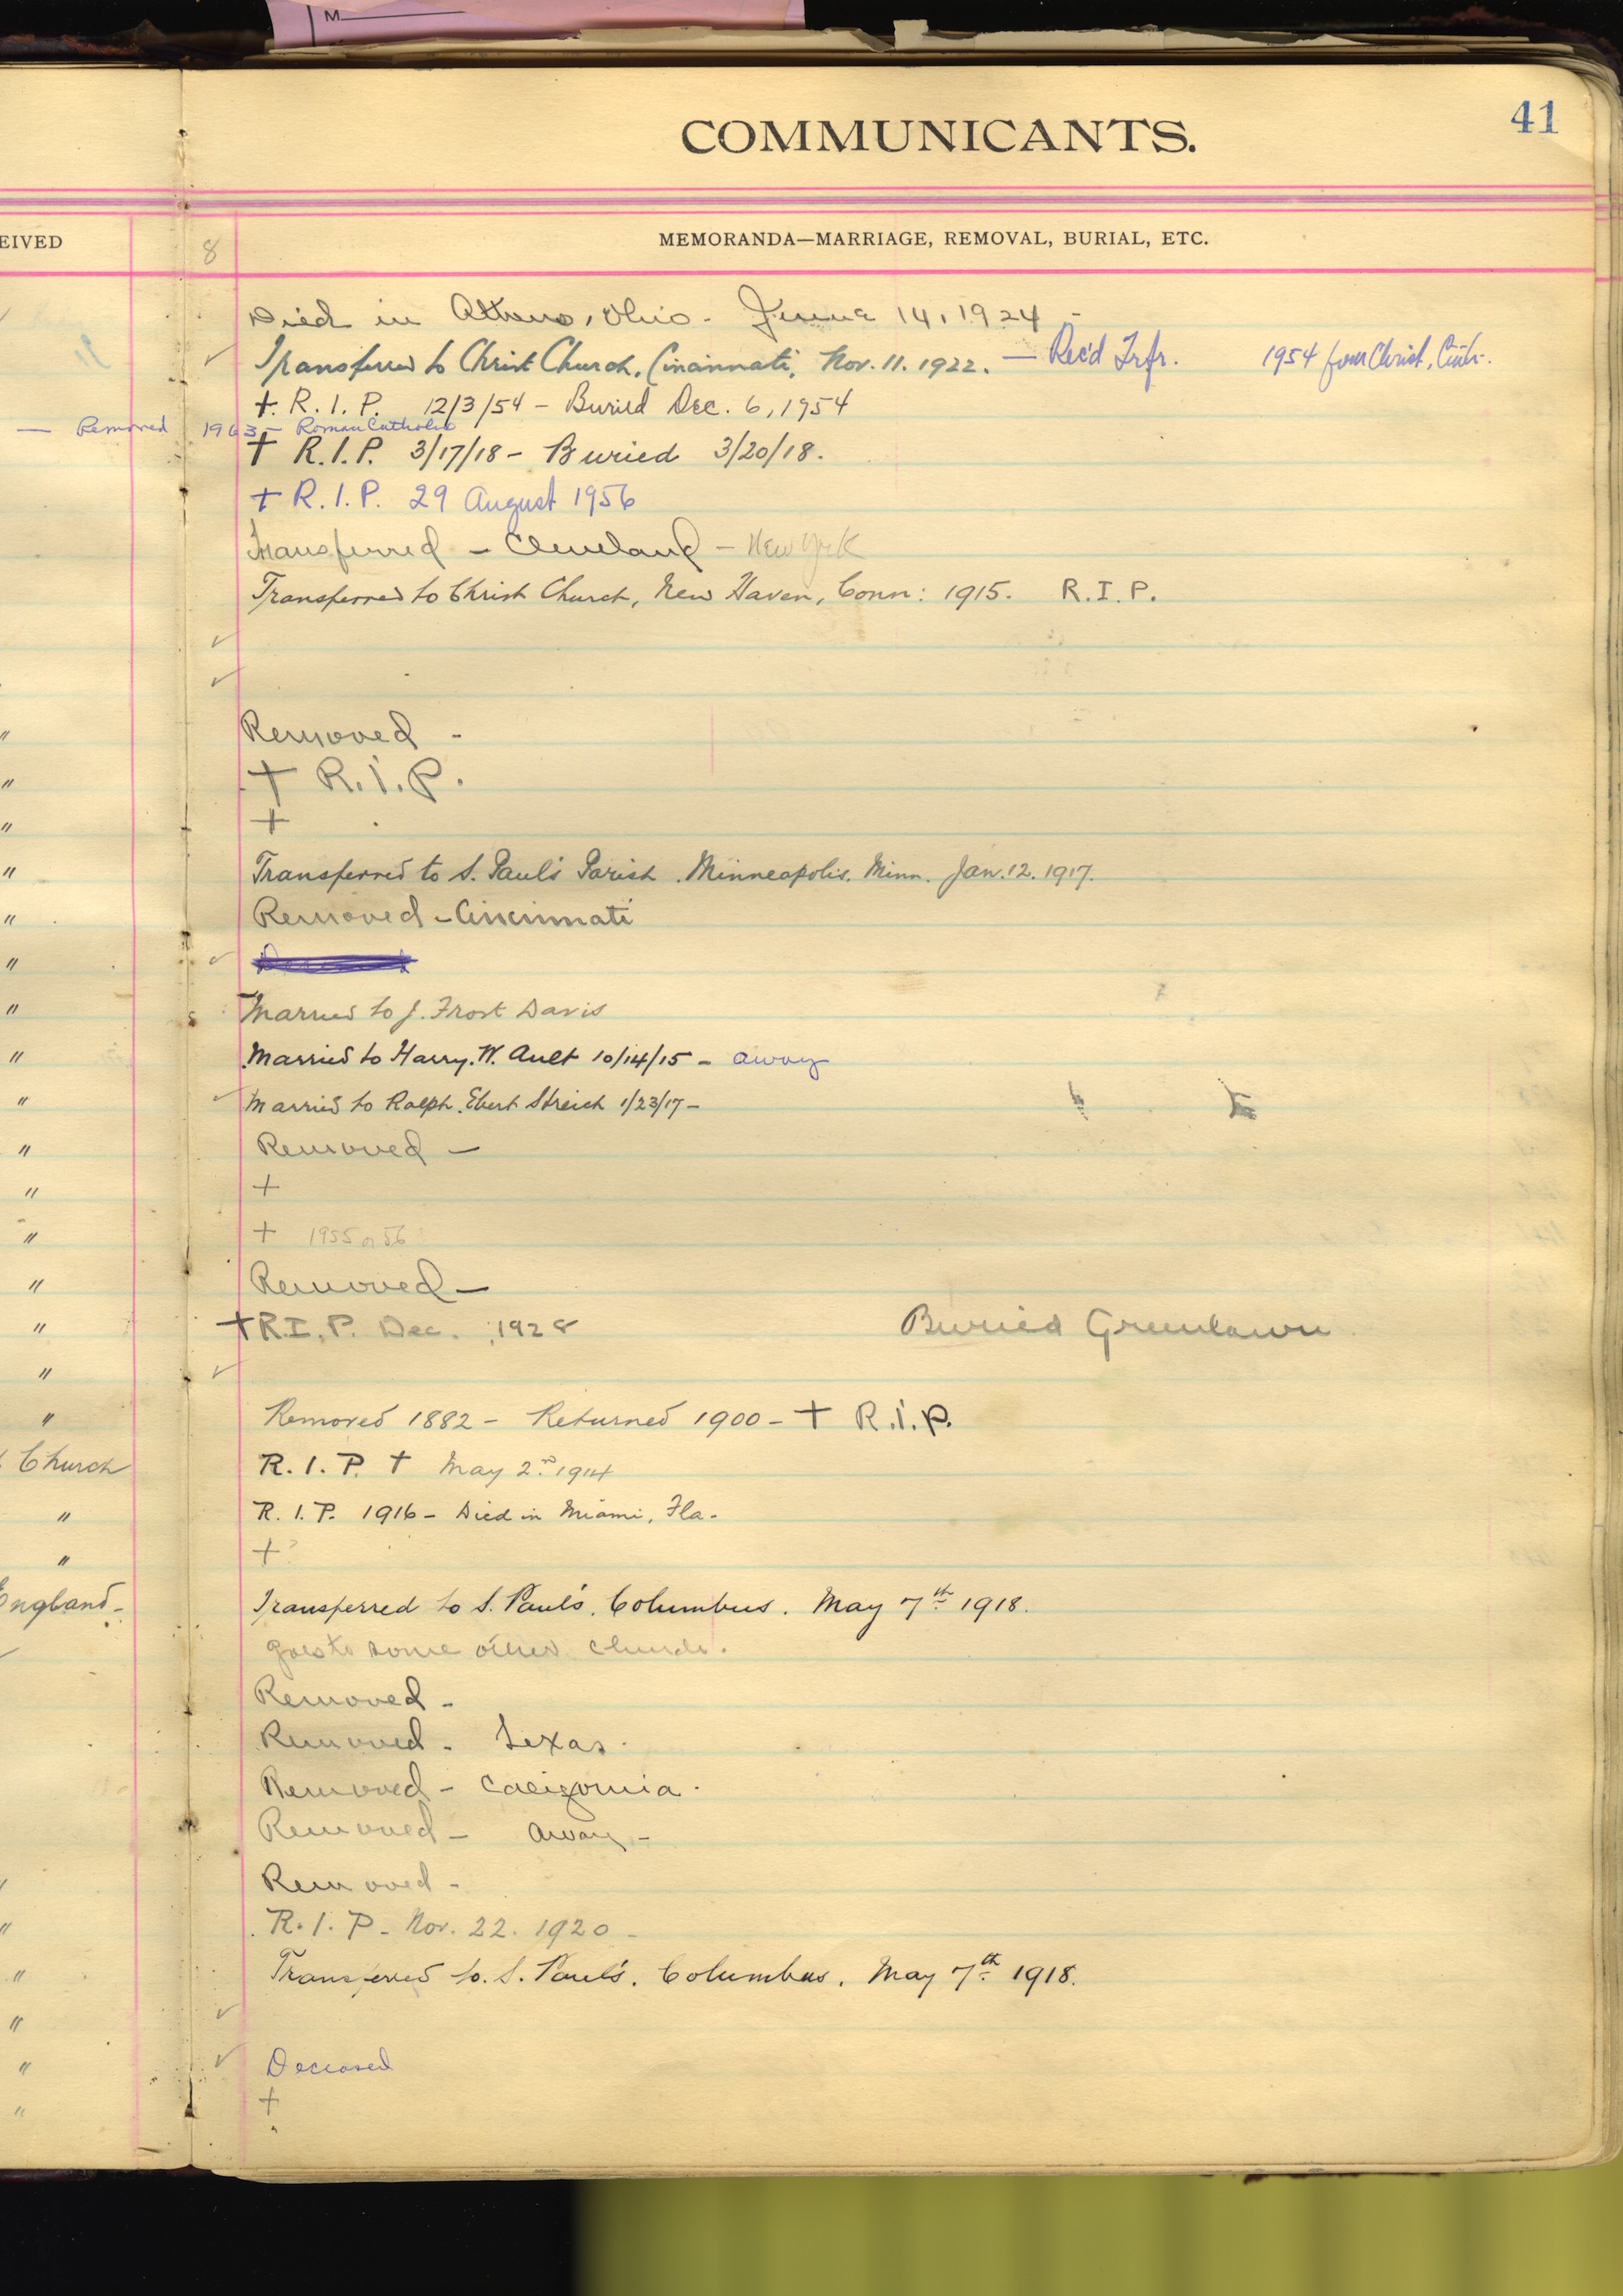 M
COMMUNICANTS.
41
EIVED
8
MEMORANDA—MARRIAGE, REMOVAL, BURIAL, ETC.
Died in Athens, Ohio - June 14, 1924 -
✓ Transferred to Christ Church, Cincinnati, Nov. 11. 1922. — Rec'd Trfr. 1954 from Christ, Cinti-.
+. R. I. P. 12/3/54 - Buried Dec. 6, 1954
— Removed 1963 - Roman Catholic
+ R.I.P. 3/17/18 - Buried 3/20/18.
+ R.I.P. 29 August 1956
Transferred - Cleveland - New York
Transferred to Christ Church, New Haven, Conn: 1915. R.I.P.
✓
✓
" Removed -
" + R.I.P.
" +
" Transferred to S. Paul's Parish. Minneapolis. Minn. Jan. 12. 1917.
" Removed - Cincinnati
" ✓
" Married to J. Frost Davis
" Married to Harry. W. Ault 10/14/15 - away
" ✓ Married to Ralph. Ebert Streich 1/23/17 -
" Removed -
" +
" + 1955 or 56
" Removed -
" + R.I.P. Dec. 1928 Buried Greenlawn
" ✓
" Removed 1882 - Returned 1900 - + R.I.P.
Church R. I. P. + May 2nd 1914
" R. I. P. 1916 - Died in Miami, Fla.
" +
England - Transferred to S. Paul's. Columbus. May 7th 1918.
goes to some other church.
Removed -
Removed - Texas.
Removed - California.
Removed - away -
Removed -
" R. I. P - Nov. 22. 1920 -
" Transferred to. S. Paul's. Columbus. May 7th 1918.
" ✓
" ✓ Deceased
" +